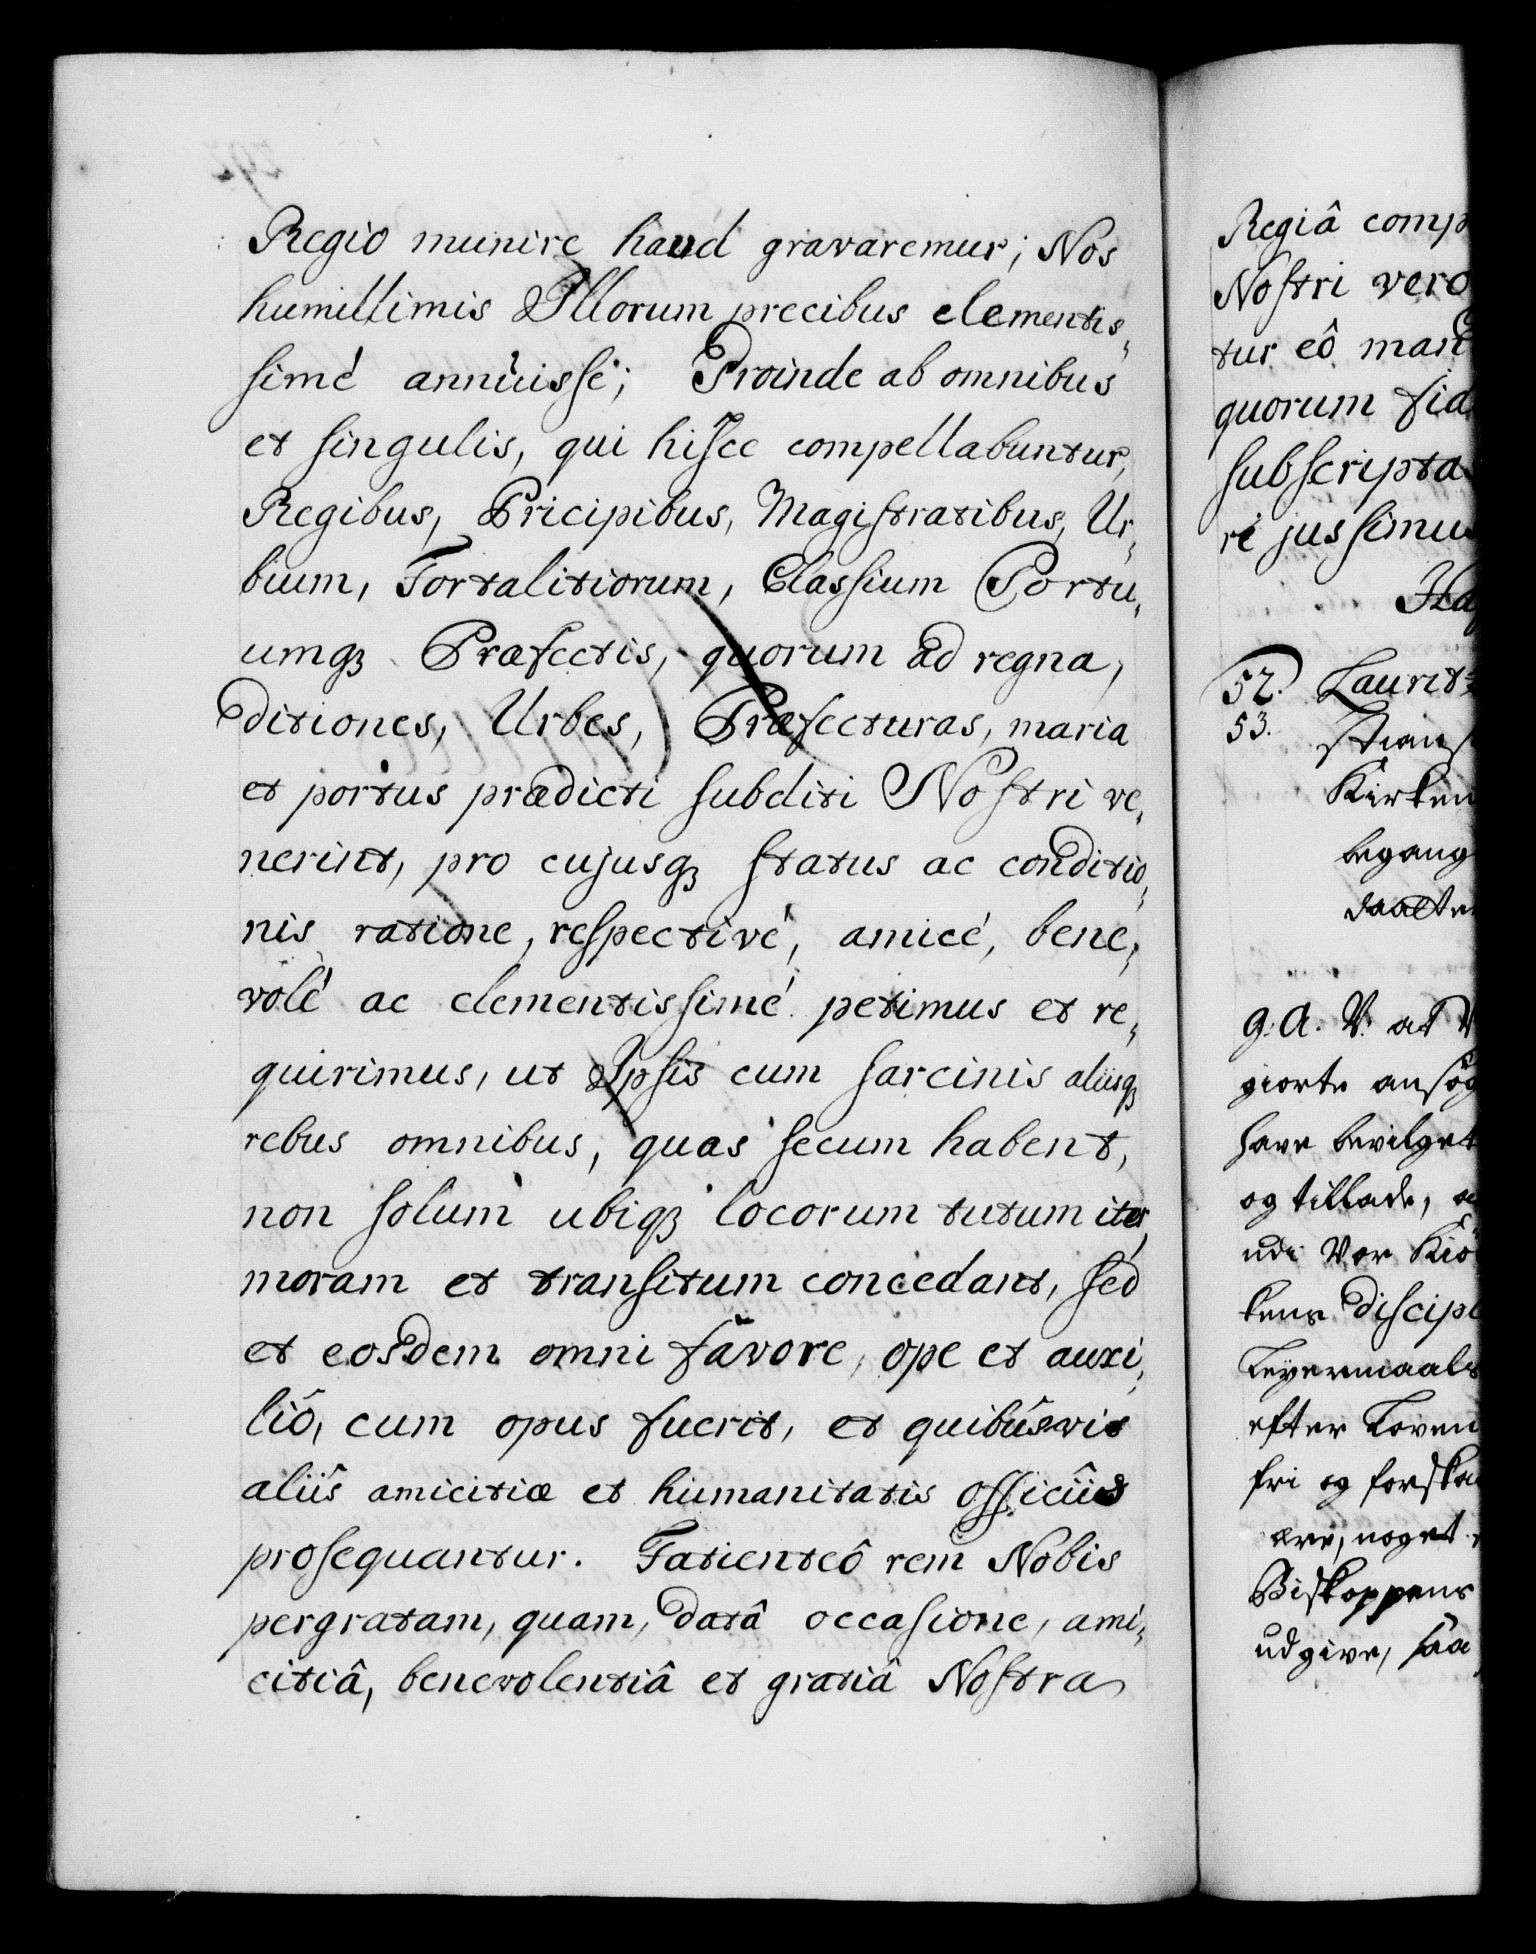 Regio munire haud gravaremur; Nos
humillimis Illorum precibus clementis,
simé annuisse; Proinde ab omnibus
et singulis, qui hisce compellabuntur,
Regibus, Pricipibus, Magistratibus, Ur,
bium, Fortalitiorum, Classium Portu,
umqꝫ Præfectis, quorum ad regna,
ditiones, Urbes, Præfecturas, maria
et portus prædicti subditi Nostri ve,
nerint, pro cujusqꝫ status ac conditio,
nis ratione, respectivé, amicé, bene,
volé ac clementissimé petimus et re,
quirimus, ut Ipsis cum sarcinis aliisqꝫ
rebus omnibus, quas secum habent,
non solum ubiqꝫ locorum tutum iter,
moram et transitum concedant, sed
et eosdem omni favore, ope et auxi,
liô, cum opus fuerit, et quibusvis
aliis amicitiæ et humanitatis officiis
prosequantur. Facienteô rem Nobis
pergratam, quam, datâ occasione, ami,
citiâ, benevolentiâ et gratiâ Nostra
Regiâ comp
Nostri vero
tur eô mand
quorum fid
subscripta
ri jussimus
Haf
52. Laurits
53. stians
Kirken
begang
daatte
G. A. V. at V
giorte ansøg
have bevilget
og tillade, a
udi Vor Kiö
kens discipl
Leyermaals
efter Loven
fri og forska
ære, noget
Biskoppens
udgive, saa